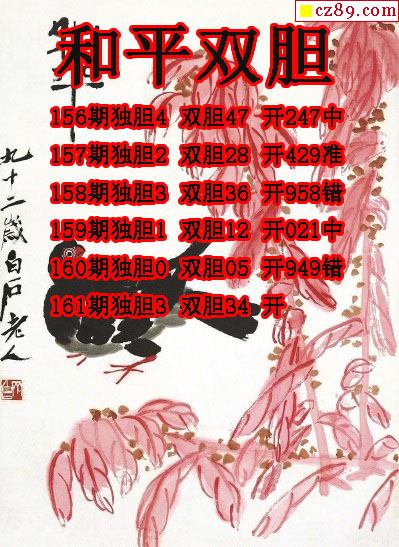 cz89.com
和平双胆
156期独胆4 双胆47 开247中
157期独胆2 双胆28 开429准
158期独胆3 双胆36 开958错
159期独胆1 双胆12 开021中
160期独胆0 双胆05 开949错
161期独胆3 双胆34 开
九十二岁白石老人